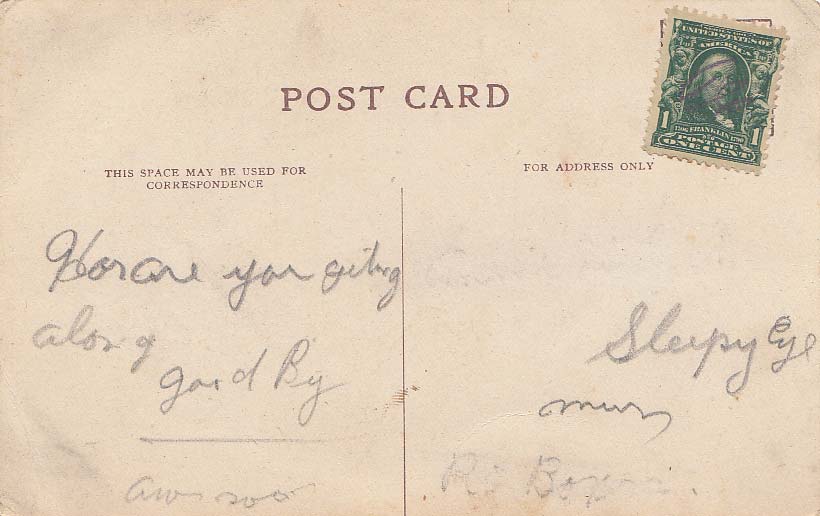 POST CARD
UNITED STATES OF
AMERICA
1 1706 FRANKLIN 1790 1
POSTAGE
ONE CENT
THIS SPACE MAY BE USED FOR
CORRESPONDENCE
FOR ADDRESS ONLY
How are you geting
along
good By
Sleepy Eye